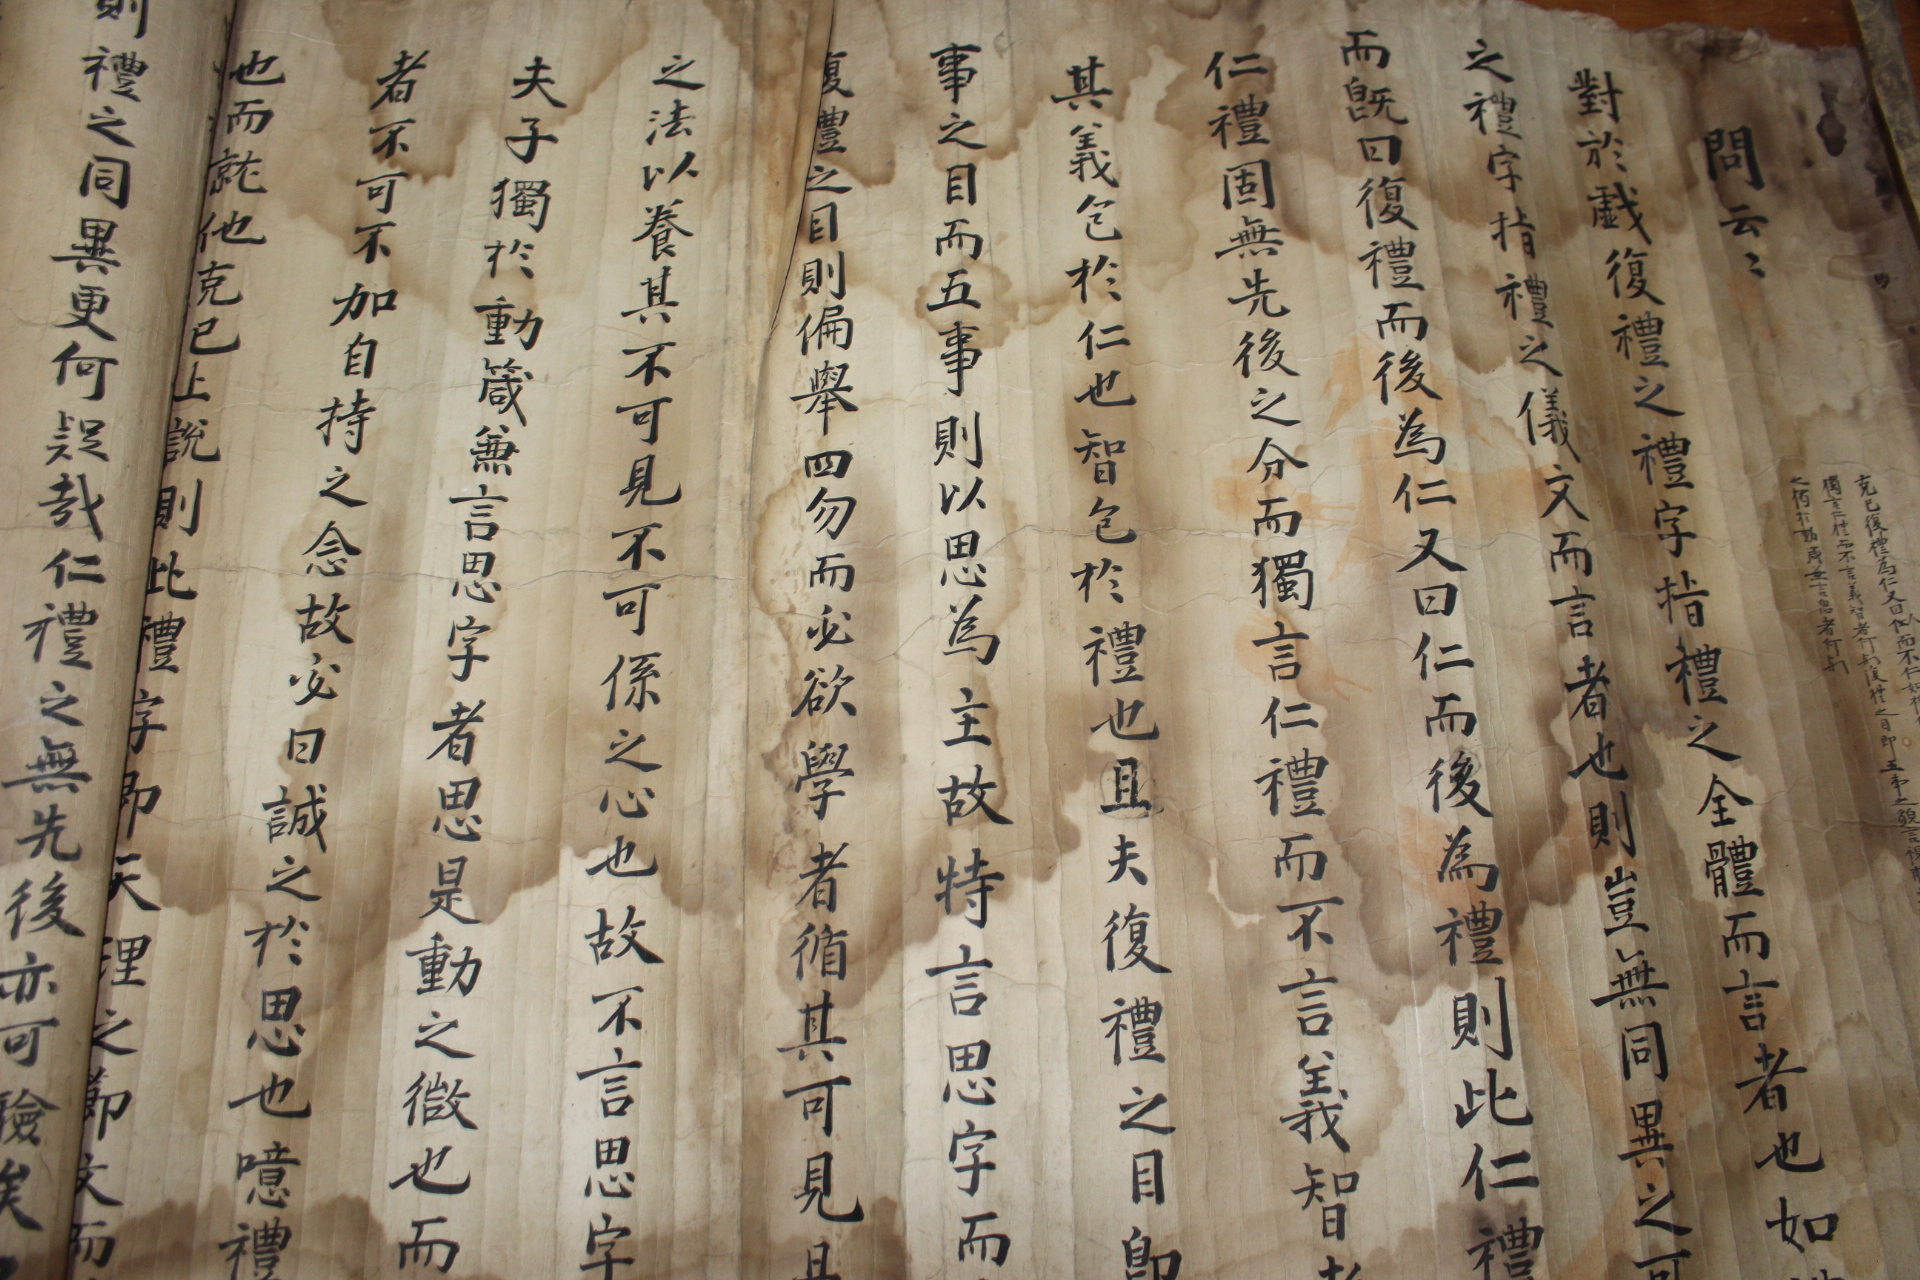 克己復禮為仁又曰
獨言仁禮而不言義智者何歟復禮之目即五事之貌言
問云〻
對於戲復禮之禮字指禮之全體而言者也如
之禮字指禮之儀文而言者也則豈無同異之可
而旣曰復禮而後為仁又曰仁而後為禮則此仁禮
仁禮固無先後之分而獨言仁禮而不言義智
其義包於仁也智包於禮也且夫復禮之目卽
事之目而五事則以思為主故特言思字而
復禮之目則偏舉四勿而必欲學者循其可見
之法以養其不可見不可係之心也故不言思字
夫子獨於動箴兼言思字者思是動之微也而
者不可不加自持之念故必曰誠之於思也噫禮
也而就他克已上說則此禮字卽天理之節文而
則禮之同異更何疑哉仁禮之無先後亦可驗矣